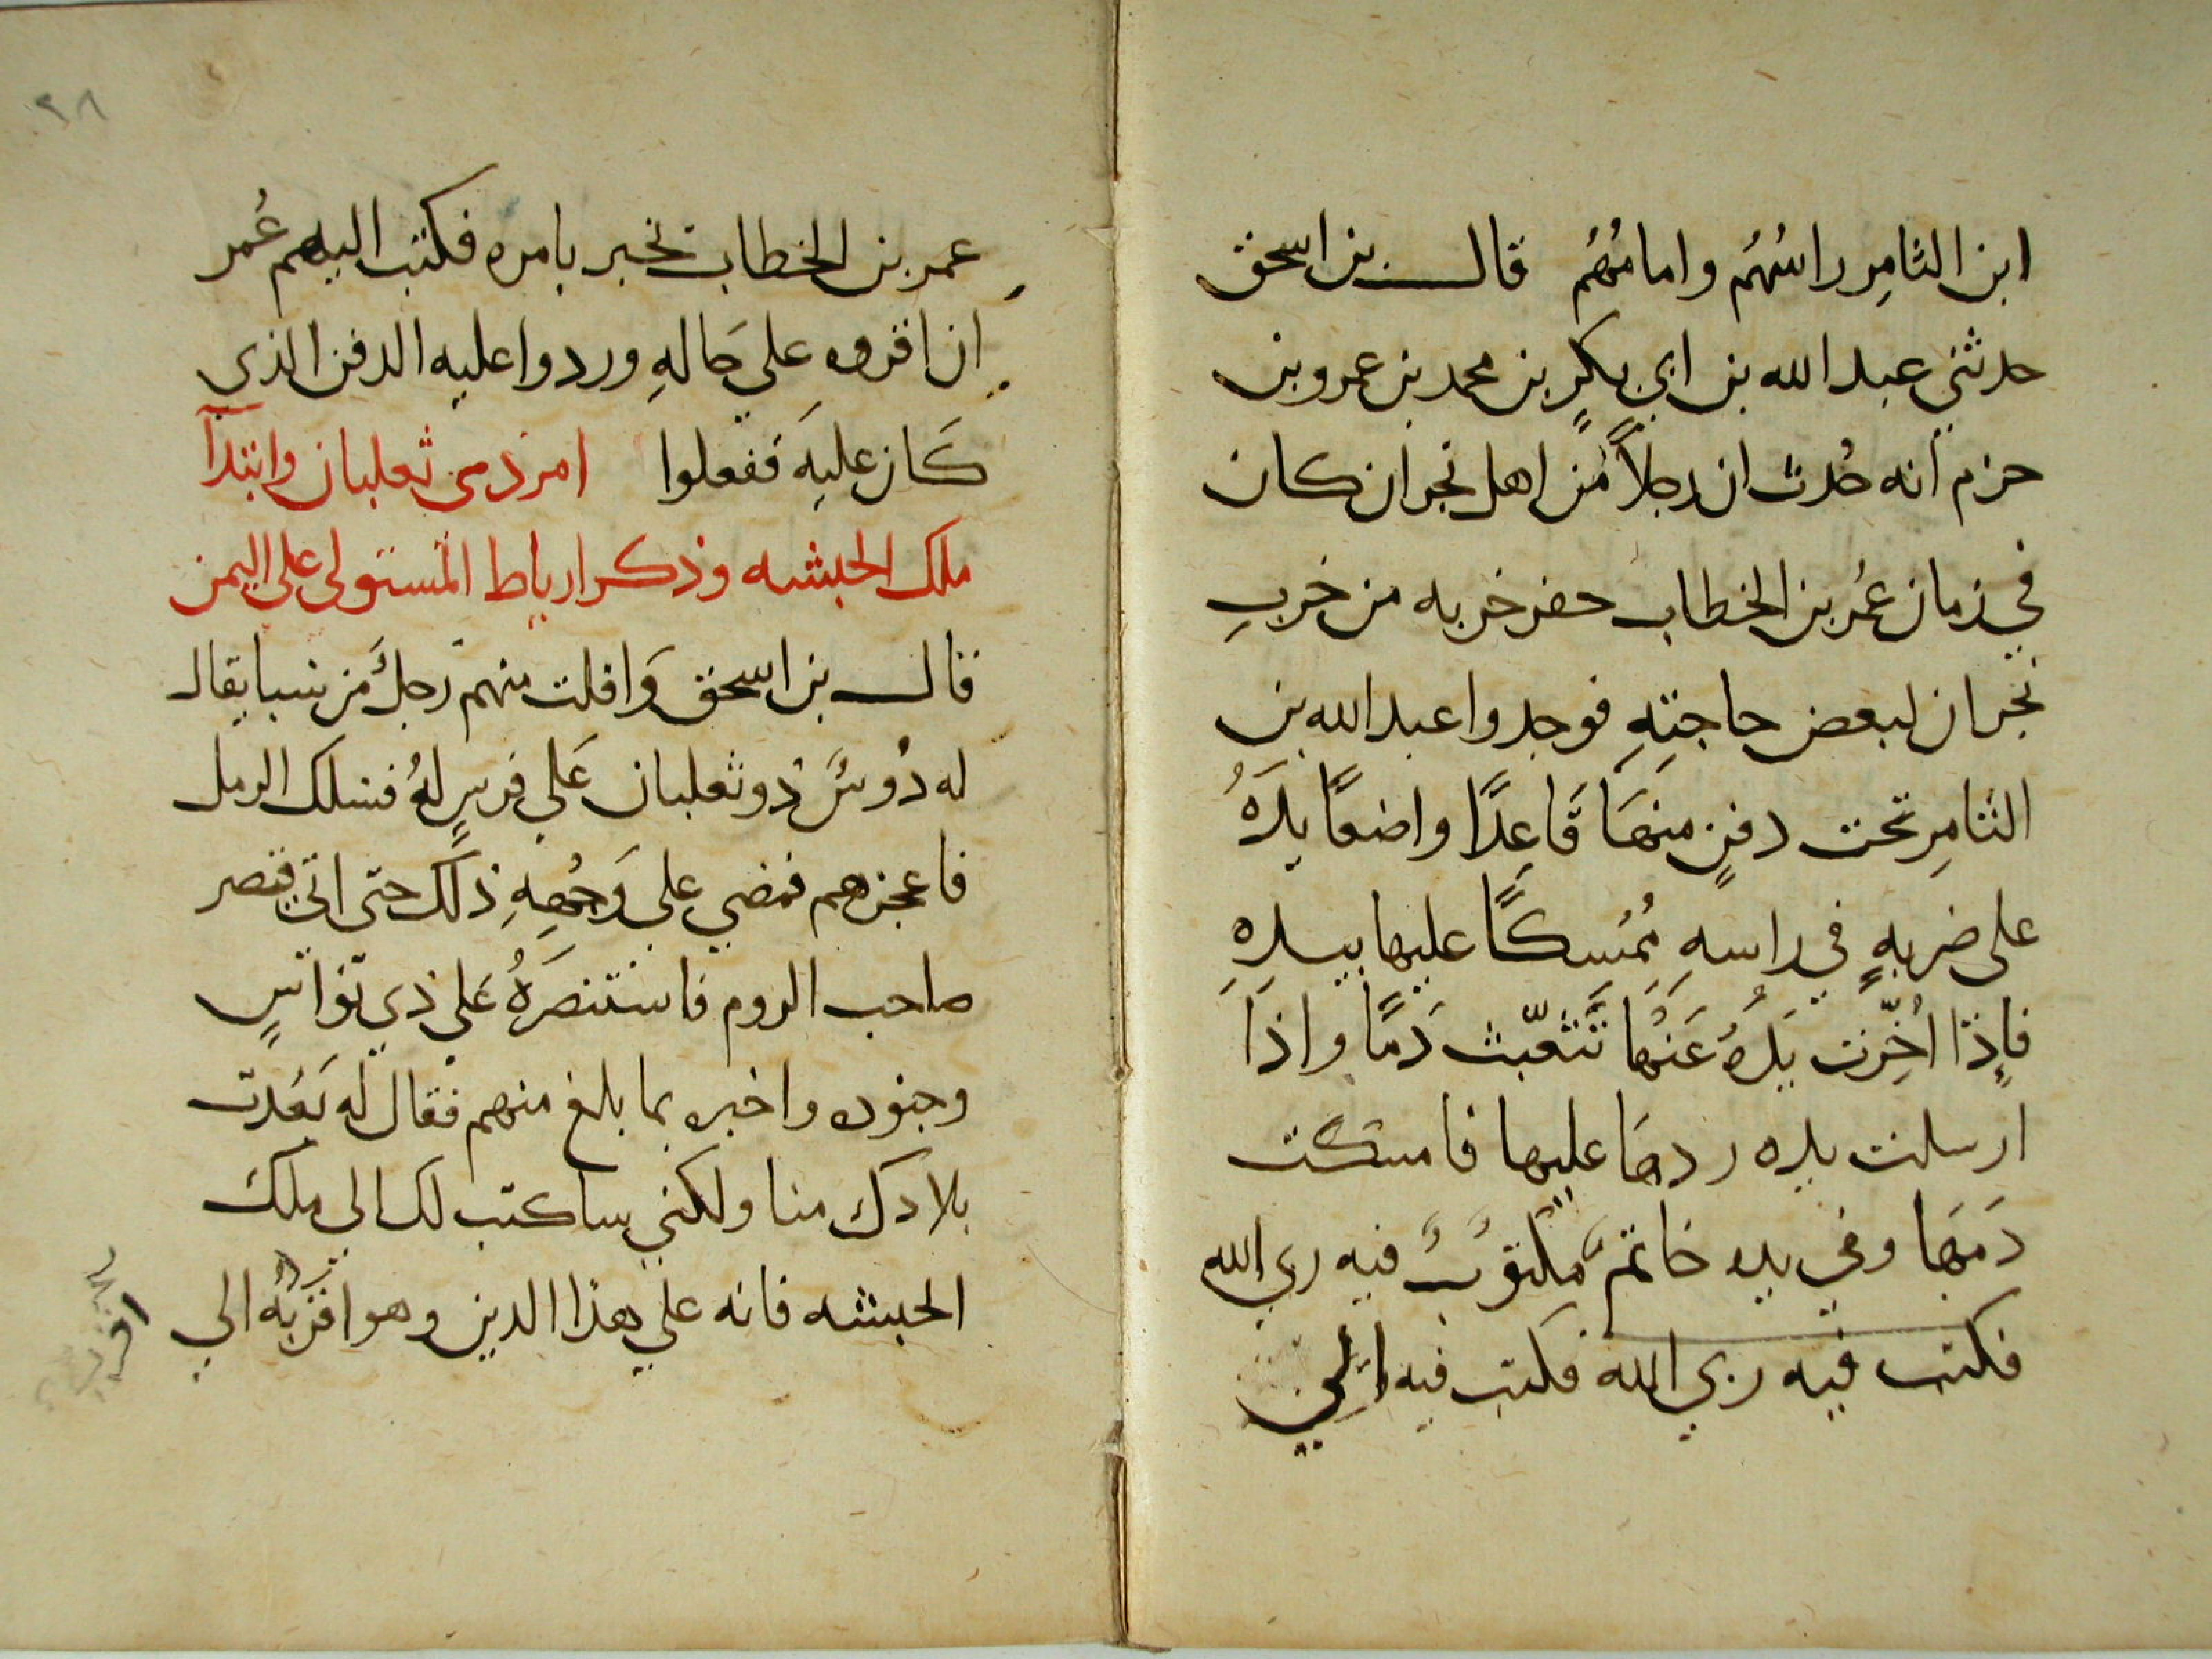 ابن الثامِر راسُهُم وامامُهُم قال بن اسحق
حدثني عبد الله بن ابي بكرٍ بن محمد بن عمرو بن
حزم انه حُدث ان رجلاً من اهل نجران كان
في زمان عُمر بن الخطاب حفر خربه من خربِ
نجران لبعض حاجتِهِ فوجدوا عبد الله بن
الثامِر تحت دفنٍ منهَا قَاعِدًا واضعًا يدَهُ
على ضربهٍ في راسهِ مُمْسِكًا عليها بيدِهِ
فاِذا اُخِّرت يَدَهُ عَنْهَا تَنْثعّبث دَمًا واذَا
ارسلت يده ردهَا عليها فامسكت
دَمَهَا وفي يده خاتمٌ مكتوبٌ فيه ربي الله
فكتب فيه ربي الله فكتب فيه الي
عمر بن الخطاب تخبر بامره فكتب اليهم عُمر
ان اقروه على حَالهِ وردوا عليه الدفن الذي
كَان عليهَ ففعلوا امر ذي ثعلبان وابتدآ
ملك الحبشه وذكر ارياط المستولي على اليمن
قال بن اسحق وَافلت منهم رَجلٌ من سبا يقال
له دُوسٌ ذو ثعلبان عَلي فرسٍ لهُ فسلك الرمل
فاعجزهم فمضي علي وَجْهِهِ ذلك حتى اتى قيصر
صاحب الروم فاستنصَرَهُ عَلي ذي نواسٍ
وجنوده واخبره بما بلغ منهم فقال له بَعُدت
بلادك منا ولكني ساكتب لك الي ملك
الحبشه فانه علي هذا الدين وهو اقربُه الي
اقرب
٢٨